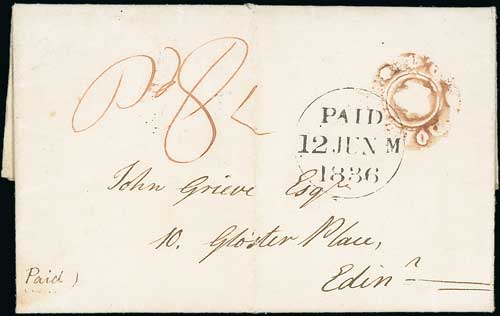 Pd 8
PAID
12 JUN M
1836
John Grieve Esqr
10. Gloster Place,
Edinr
Paid)